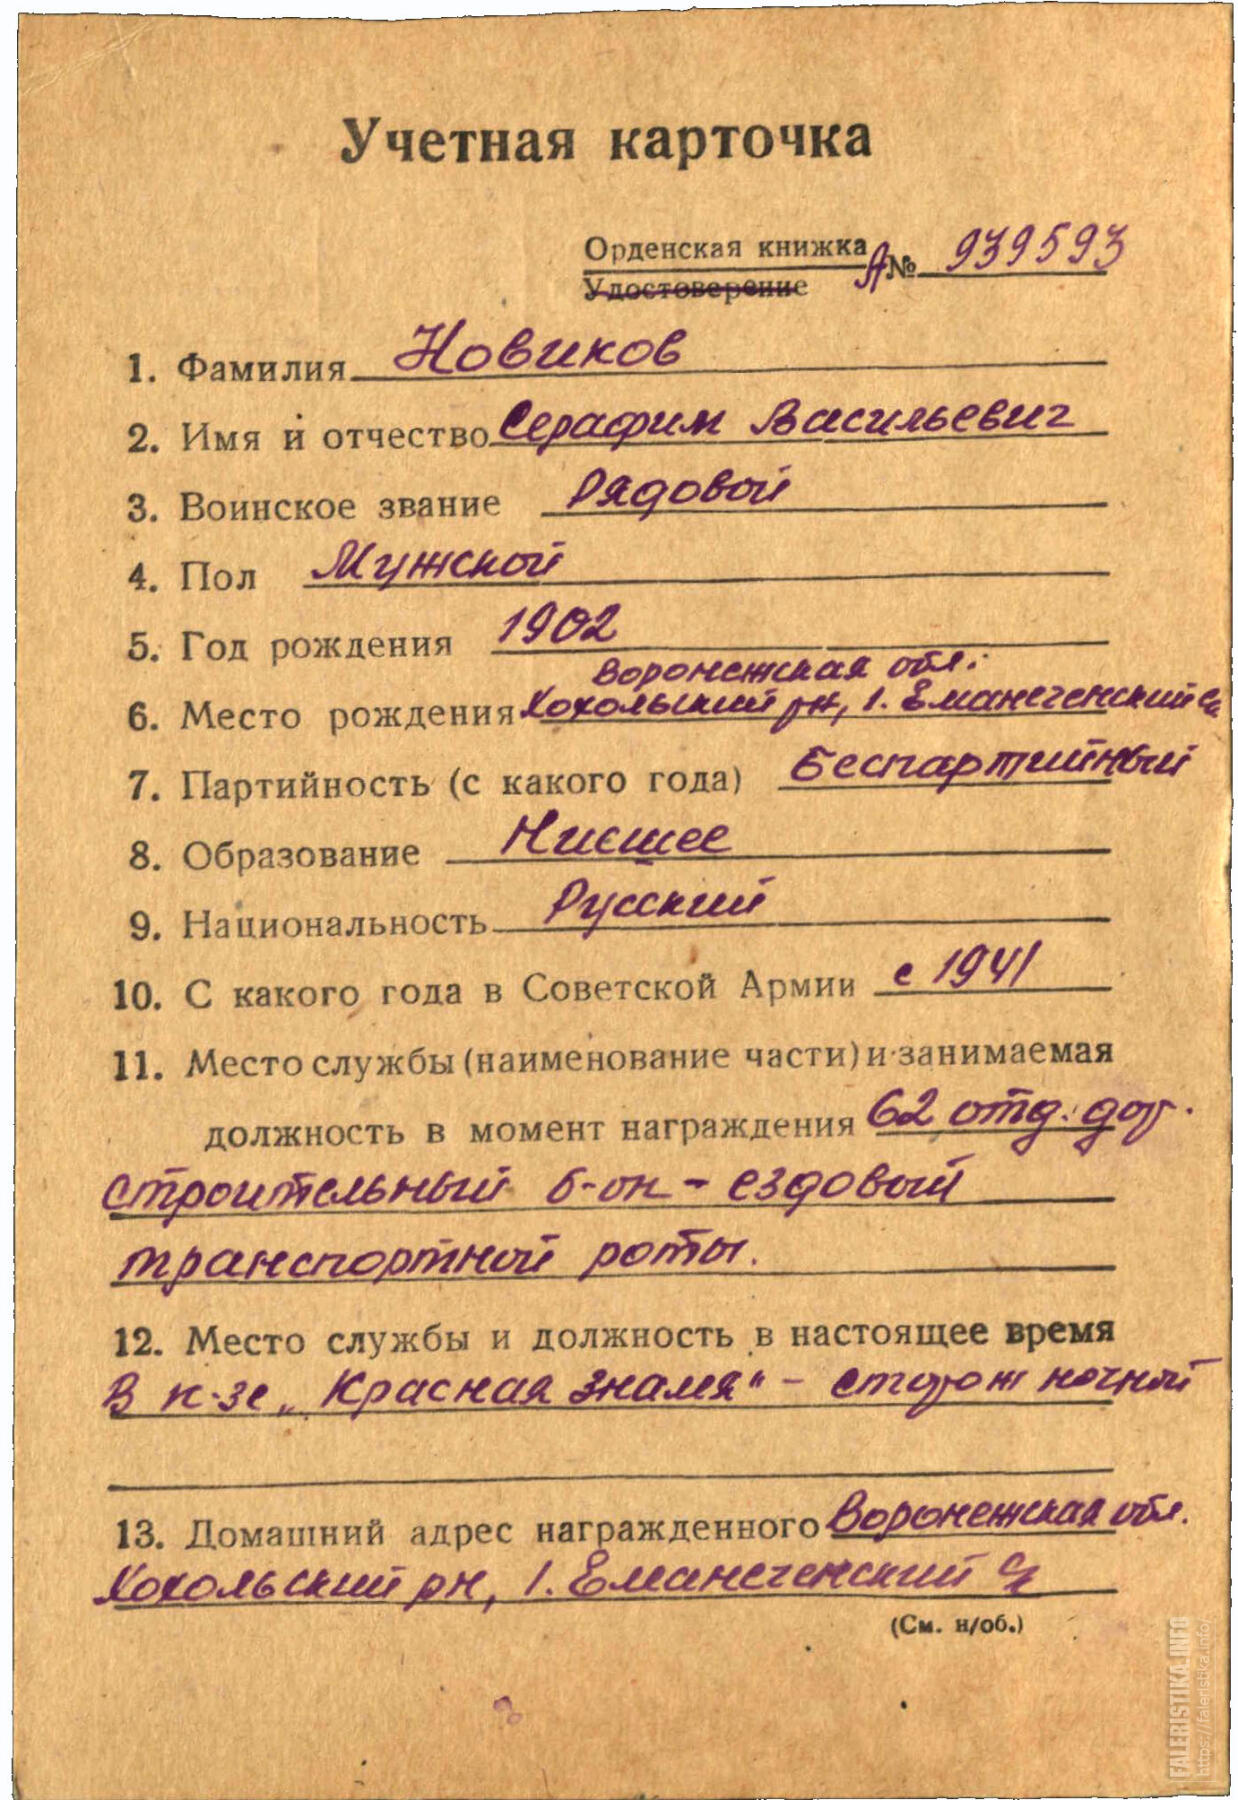 Учетная карточка
Орденская книжка А№ 939593
Удостоверение
1. Фамилия Новиков
2. Имя и отчество Серафим Васильевич
3. Воинское звание Рядовой
4. Пол Мужской
5. Год рождения 1902
Воронежская обл.
6. Место рождения Хохольский рн, 1. Еманеченский с/с
7. Партийность (с какого года) Беспартийный
8. Образование Нисшее
9. Национальность Русский
10. С какого года в Советской Армии с 1941
11. Место службы (наименование части) и занимаемая
должность в момент награждения 62 отд. дор.
строительный б-он - ездовый
транспортной роты.
12. Место службы и должность в настоящее время
В к-зе „Красная знамя" - сторож ночной
13. Домашний адрес награжденного Воронежская обл.
Хохольский рн, 1. Еманеченский с/с
(См. н/об.)
FALERISTIKA.INFO
https://faleristika.info/